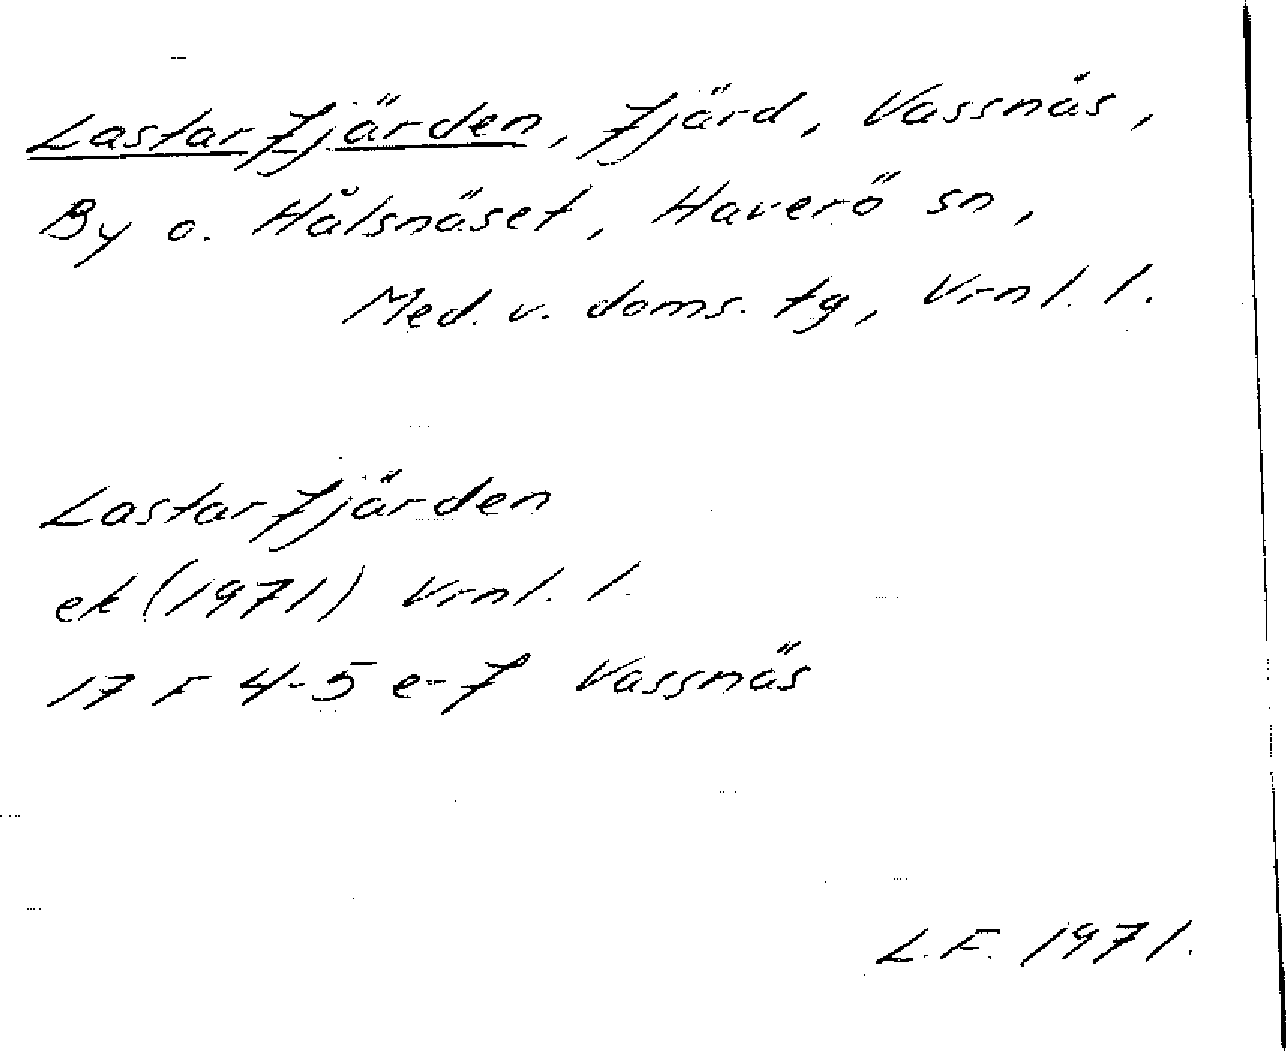 Lastarfjärden, fjärd, Vassnäs,
By o. Hålsnäset, Haverö sn,
Med. v. doms. tg, Vrnl. l.
Lastarfjärden
ek (1971) Vrnl. l.
17 F 4-5 e-f Vassnäs
L.F. 1971.